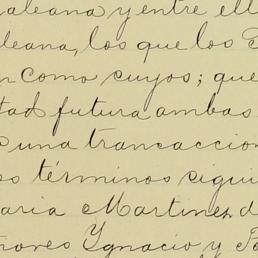 aleana y entre ell
leana, los que los
n como suyos; que
tad futura ambas
una transaccion
os términos sigui
aria Martinez d
nores Ygnacio y